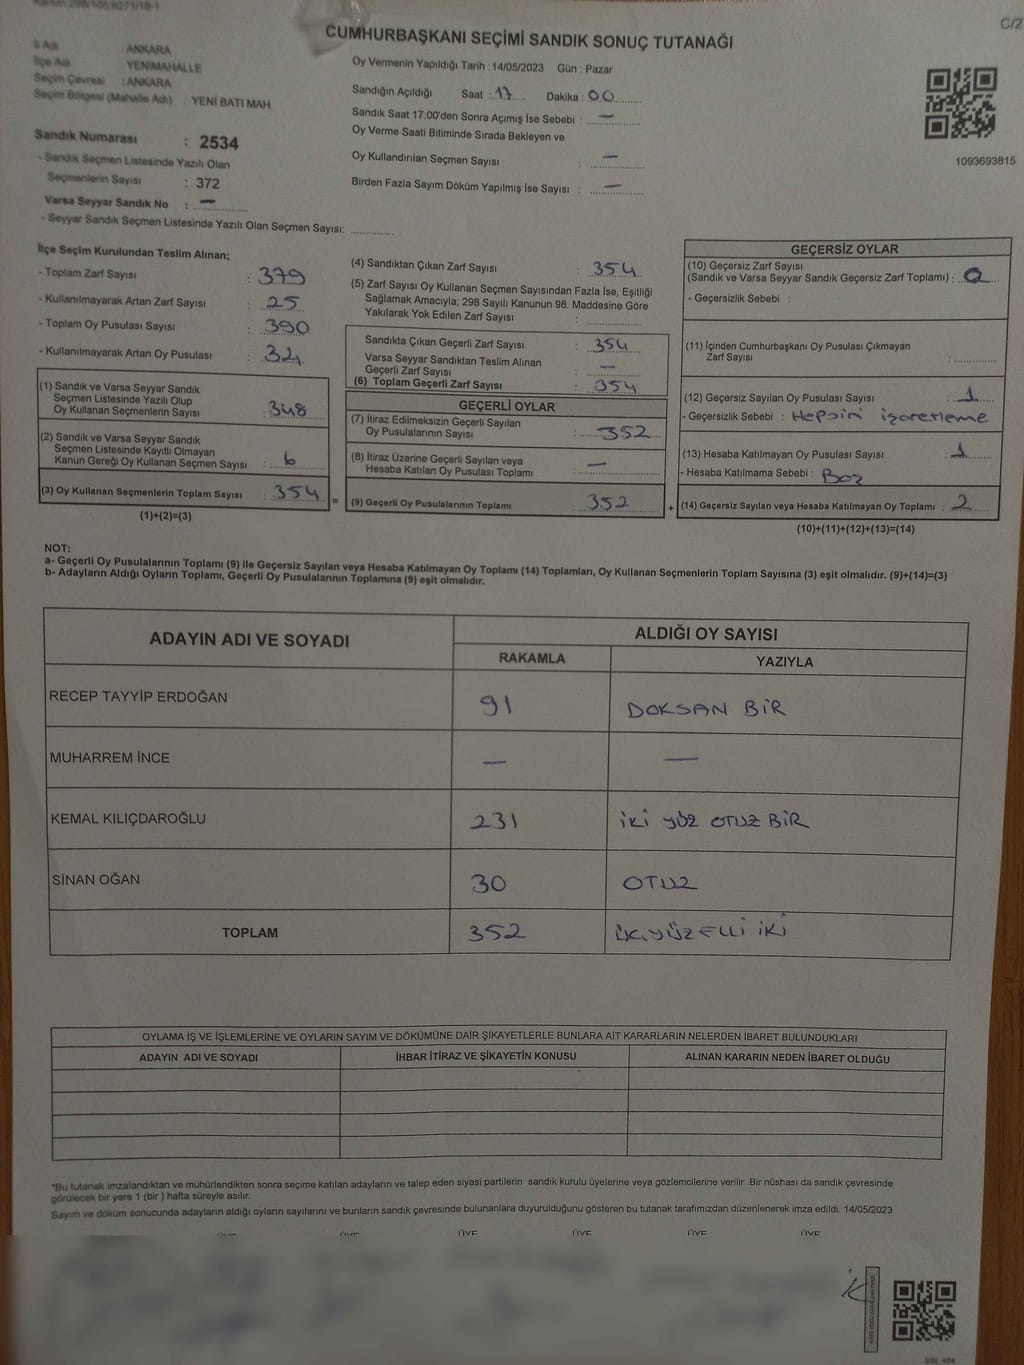 C/2
CUMHURBAŞKANI SEÇİMİ SANDIK SONUÇ TUTANAĞI
İl Adı : ANKARA
İlçe Adı : YENİMAHALLE
Seçim Çevresi : ANKARA
Seçim Bölgesi (Mahalle Adı) : YENİ BATI MAH.
Sandık Numarası : 2534
- Sandık Seçmen Listesinde Yazılı Olan
Seçmenlerin Sayısı : 372
Varsa Seyyar Sandık No : —
- Seyyar Sandık Seçmen Listesinde Yazılı Olan Seçmen Sayısı:
Oy Vermenin Yapıldığı Tarih : 14/05/2023 Gün : Pazar
Sandığın Açıldığı Saat : 17 Dakika : 00
Sandık Saat 17:00'den Sonra Açılmış İse Sebebi : —
Oy Verme Saati Bitiminde Sırada Bekleyen ve
Oy Kullandırılan Seçmen Sayısı : —
Birden Fazla Sayım Döküm Yapılmış İse Sayısı : —
1093693815
İlçe Seçim Kurulundan Teslim Alınan;
- Toplam Zarf Sayısı : 379
- Kullanılmayarak Artan Zarf Sayısı : 25
- Toplam Oy Pusulası Sayısı : 390
- Kullanılmayarak Artan Oy Pusulası :
(1) Sandık ve Varsa Seyyar Sandık
Seçmen Listesinde Yazılı Olup
Oy Kullanan Seçmenlerin Sayısı : 348
(2) Sandık ve Varsa Seyyar Sandık
Seçmen Listesinde Kayıtlı Olmayan
Kanun Gereği Oy Kullanan Seçmen Sayısı : 6
(3) Oy Kullanan Seçmenlerin Toplam Sayısı : 354 =
(1)+(2)=(3)
(4) Sandıktan Çıkan Zarf Sayısı : 354
(5) Zarf Sayısı Oy Kullanan Seçmen Sayısından Fazla İse, Eşitliği
Sağlamak Amacıyla; 298 Sayılı Kanunun 98. Maddesine Göre
Yakılarak Yok Edilen Zarf Sayısı :
Sandıkta Çıkan Geçerli Zarf Sayısı : 354
Varsa Seyyar Sandıktan Teslim Alınan
Geçerli Zarf Sayısı : —
(6) Toplam Geçerli Zarf Sayısı : 354
GEÇERLİ OYLAR
(7) İtiraz Edilmeksizin Geçerli Sayılan
Oy Pusulalarının Sayısı : 352
(8) İtiraz Üzerine Geçerli Sayılan veya
Hesaba Katılan Oy Pusulası Toplamı : —
(9) Geçerli Oy Pusulalarının Toplamı : 352 +
GEÇERSİZ OYLAR
(10) Geçersiz Zarf Sayısı
(Sandık ve Varsa Seyyar Sandık Geçersiz Zarf Toplamı) : 0
- Geçersizlik Sebebi :
(11) İçinden Cumhurbaşkanı Oy Pusulası Çıkmayan
Zarf Sayısı :
(12) Geçersiz Sayılan Oy Pusulası Sayısı : 1
- Geçersizlik Sebebi : Hepsini işaretleme
(13) Hesaba Katılmayan Oy Pusulası Sayısı : 1
- Hesaba Katılmama Sebebi : Boş
(14) Geçersiz Sayılan veya Hesaba Katılmayan Oy Toplamı : 2
(10)+(11)+(12)+(13)=(14)
NOT:
a- Geçerli Oy Pusulalarının Toplamı (9) ile Geçersiz Sayılan veya Hesaba Katılmayan Oy Toplamı (14) Toplamları, Oy Kullanan Seçmenlerin Toplam Sayısına (3) eşit olmalıdır. (9)+(14)=(3)
b- Adayların Aldığı Oyların Toplamı, Geçerli Oy Pusulalarının Toplamına (9) eşit olmalıdır.
ADAYIN ADI VE SOYADI ALDIĞI OY SAYISI
RAKAMLA YAZIYLA
RECEP TAYYİP ERDOĞAN 91 DOKSAN BİR
MUHARREM İNCE — —
KEMAL KILIÇDAROĞLU 231 İKİ YÜZ OTUZ BİR
SİNAN OĞAN 30 OTUZ
TOPLAM 352 ÜÇYÜZELLİ İKİ
OYLAMA İŞ VE İŞLEMLERİNE VE OYLARIN SAYIM VE DÖKÜMÜNE DAİR ŞİKAYETLERLE BUNLARA AİT KARARLARIN NELERDEN İBARET BULUNDUKLARI
ADAYIN ADI VE SOYADI İHBAR İTİRAZ VE ŞİKAYETİN KONUSU ALINAN KARARIN NEDEN İBARET OLDUĞU
"Bu tutanak imzalandıktan ve mühürlendikten sonra seçime katılan adayların ve talep eden siyasi partilerin sandık kurulu üyelerine veya gözlemcilerine verilir .Bir nüshası da sandık çevresinde
görülecek bir yere 1 (bir ) hafta süreyle asılır.
Sayım ve döküm sonucunda adayların aldığı oyların sayılarını ve bunların sandık çevresinde bulunanlara duyurulduğunu gösteren bu tutanak tarafımızdan düzenlenerek imza edildi. 14/05/2023
ÜYE ÜYE ÜYE ÜYE ÜYE ÜYE